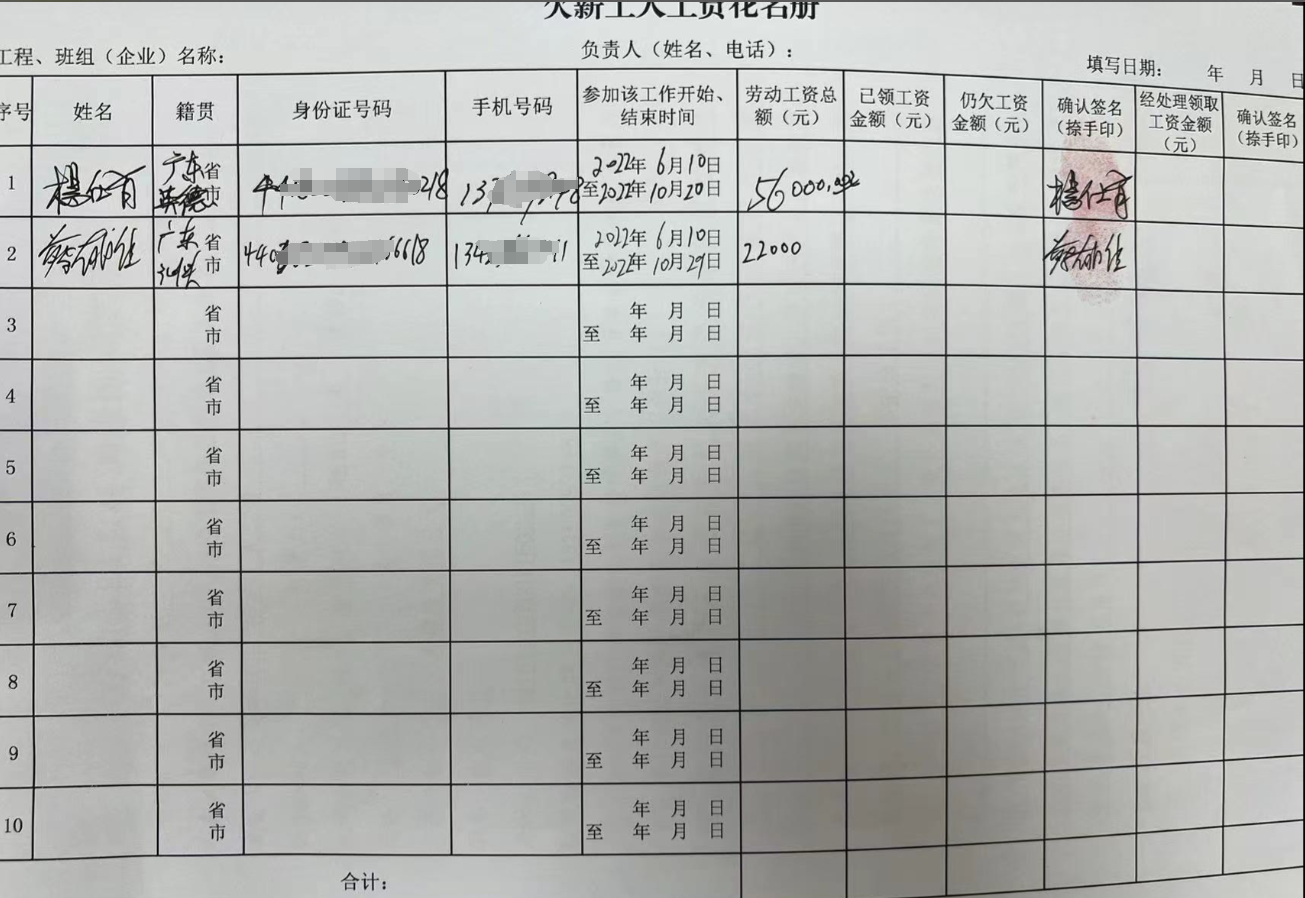 欠薪工人工资花名册
工程、班组（企业）名称：
负责人（姓名、电话）：
填写日期： 年 月 日
序号 姓名 籍贯 身份证号码 手机号码 参加该工作开始、结束时间 劳动工资总额（元） 已领工资金额（元） 仍欠工资金额（元） 确认签名（捺手印） 经处理领取工资金额（元） 确认签名（捺手印）
1 杨仕育 广东省 英德市 2022年6月10日 至2022年10月20日 杨仕育
2 广东省 市 2022年6月10日 至2022年10月29日 22000
3 省 市 年 月 日 至 年 月 日
4 省 市 年 月 日 至 年 月 日
5 省 市 年 月 日 至 年 月 日
6 省 市 年 月 日 至 年 月 日
7 省 市 年 月 日 至 年 月 日
8 省 市 年 月 日 至 年 月 日
9 省 市 年 月 日 至 年 月 日
10 省 市 年 月 日 至 年 月 日
合计：